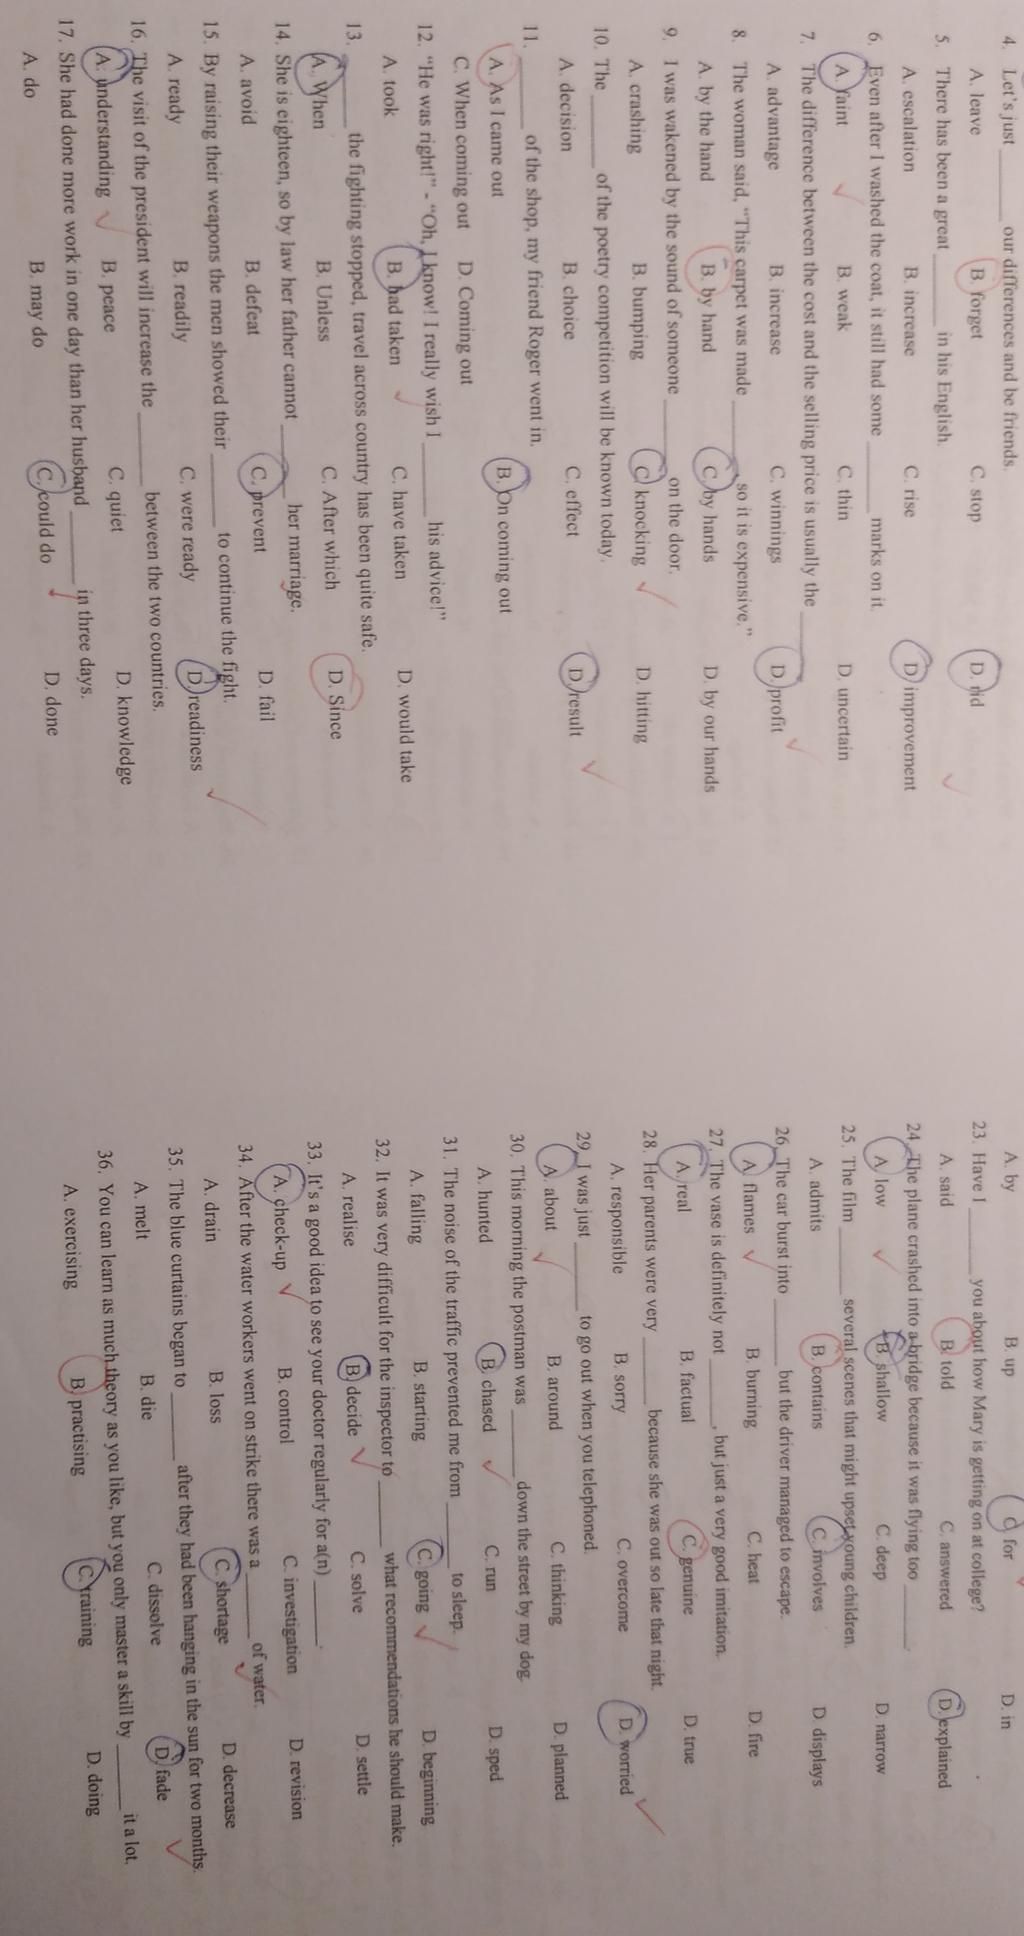 4. Let's just ______ our differences and be friends.
A. leave B. forget C. stop D. rid
5. There has been a great ______ in his English.
A. escalation B. increase C. rise D. improvement
6. Even after I washed the coat, it still had some ______ marks on it.
A. faint B. weak C. thin D. uncertain
7. The difference between the cost and the selling price is usually the ______
A. advantage B. increase C. winnings D. profit
8. The woman said, "This carpet was made ______ so it is expensive."
A. by the hand B. by hand C. by hands D. by our hands
9. I was wakened by the sound of someone ______ on the door.
A. crashing B. bumping C. knocking D. hitting
10. The ______ of the poetry competition will be known today.
A. decision B. choice C. effect D. result
11. ______ of the shop, my friend Roger went in.
A. As I came out B. On coming out
C. When coming out D. Coming out
12. "He was right!" - "Oh, I know! I really wish I ______ his advice!"
A. took B. had taken C. have taken D. would take
13. ______ the fighting stopped, travel across country has been quite safe.
A. When B. Unless C. After which D. Since
14. She is eighteen, so by law her father cannot ______ her marriage.
A. avoid B. defeat C. prevent D. fail
15. By raising their weapons the men showed their ______ to continue the fight.
A. ready B. readily C. were ready D. readiness
16. The visit of the president will increase the ______ between the two countries.
A. understanding B. peace C. quiet D. knowledge
17. She had done more work in one day than her husband ______ in three days.
A. do B. may do C. could do D. done
A. by B. up C. for D. in
23. Have I ______ you about how Mary is getting on at college?
A. said B. told C. answered D. explained
24. The plane crashed into a bridge because it was flying too ______.
A. low B. shallow C. deep D. narrow
25. The film ______ several scenes that might upset young children.
A. admits B. contains C. involves D. displays
26. The car burst into ______ but the driver managed to escape.
A. flames B. burning C. heat D. fire
27. The vase is definitely not ______, but just a very good imitation.
A. real B. factual C. genuine D. true
28. Her parents were very ______ because she was out so late that night.
A. responsible B. sorry C. overcome D. worried
29. I was just ______ to go out when you telephoned.
A. about B. around C. thinking D. planned
30. This morning the postman was ______ down the street by my dog.
A. hunted B. chased C. run D. sped
31. The noise of the traffic prevented me from ______ to sleep.
A. falling B. starting C. going D. beginning
32. It was very difficult for the inspector to ______ what recommendations he should make.
A. realise B. decide C. solve D. settle
33. It's a good idea to see your doctor regularly for a(n) ______.
A. check-up B. control C. investigation D. revision
34. After the water workers went on strike there was a ______ of water.
A. drain B. loss C. shortage D. decrease
35. The blue curtains began to ______ after they had been hanging in the sun for two months.
A. melt B. die C. dissolve D. fade
36. You can learn as much theory as you like, but you only master a skill by ______ it a lot.
A. exercising B. practising C. training D. doing